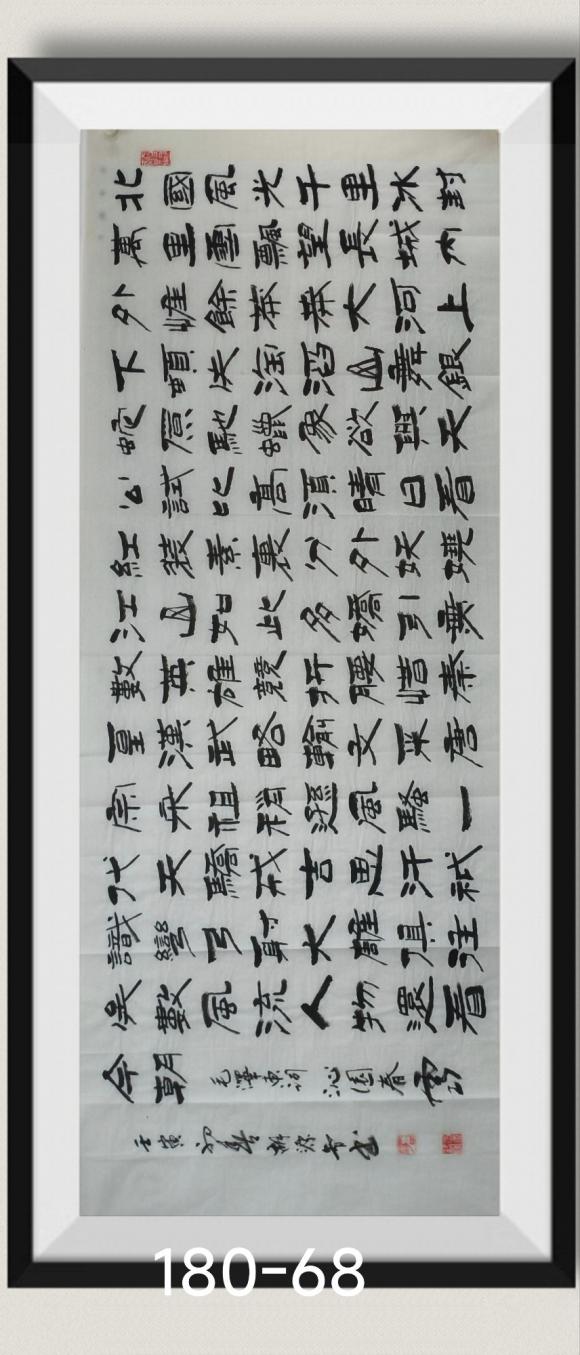 北國風光千里冰封
萬里雪飄望長城內
外惟餘莽莽大河上
下頓失滔滔山舞銀
蛇原馳蠟象欲與天
公試比高須晴日看
紅裝素裹分外妖嬈
江山如此多嬌引無
數英雄競折腰惜秦
皇漢武略輸文采唐
宗宋祖稍遜風騷一
代天驕成吉思汗祇
識彎弓射大雕俱往
矣數風流人物還看
今朝 毛澤東詞 沁園春 雪
壬寅初春 书
180-68